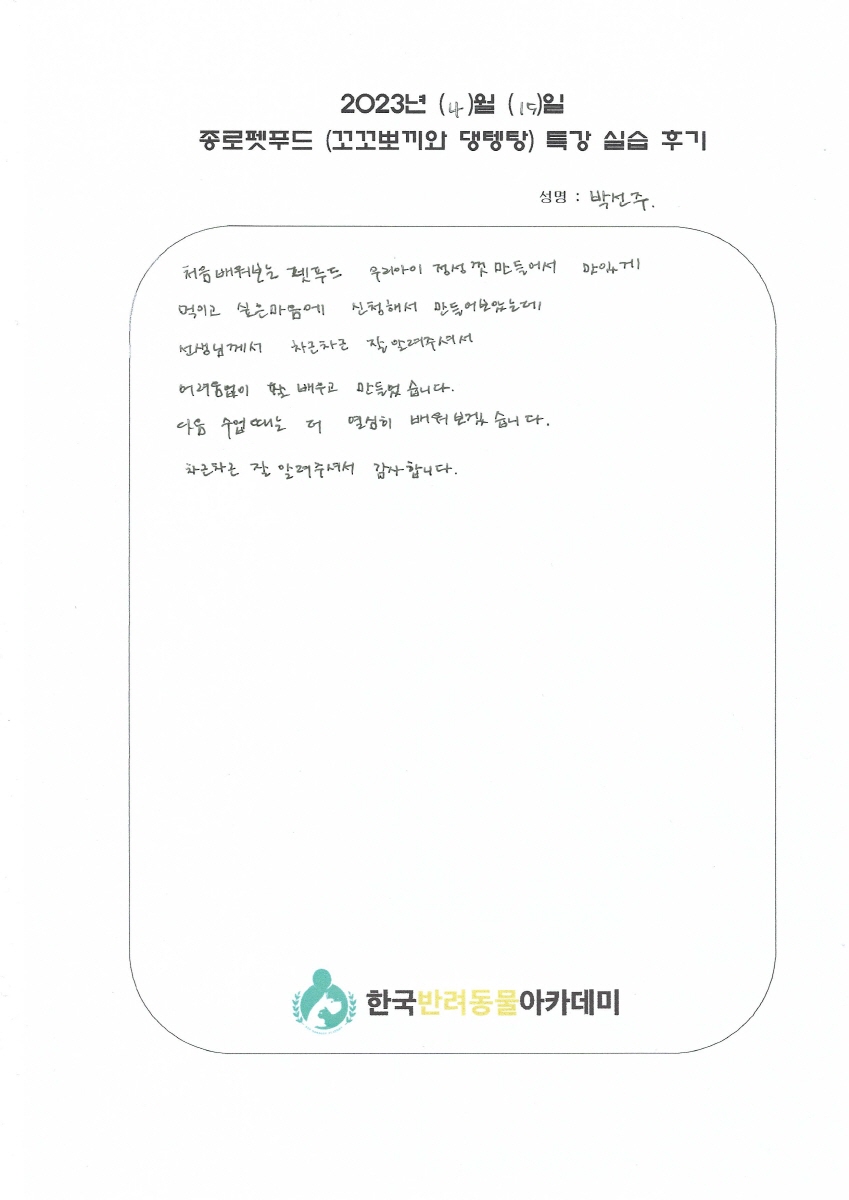 2023년 (4)월 (15)일
종로펫푸드 (꼬꼬뽀끼와 댕텡탕) 특강 실습 후기
성명 : 박선주.
처음배워보는 펫푸드 우리아이 정성껏 만들어서 맛있게
먹이고 싶은마음에 신청해서 만들어보았는데
선생님께서 차근차근 잘알려주셔서
어려움없이 잘 배우고 만들었습니다.
다음 수업때는 더 열심히 배워보겠습니다.
차근차근 잘 알려주셔서 감사합니다.
한국반려동물아카데미